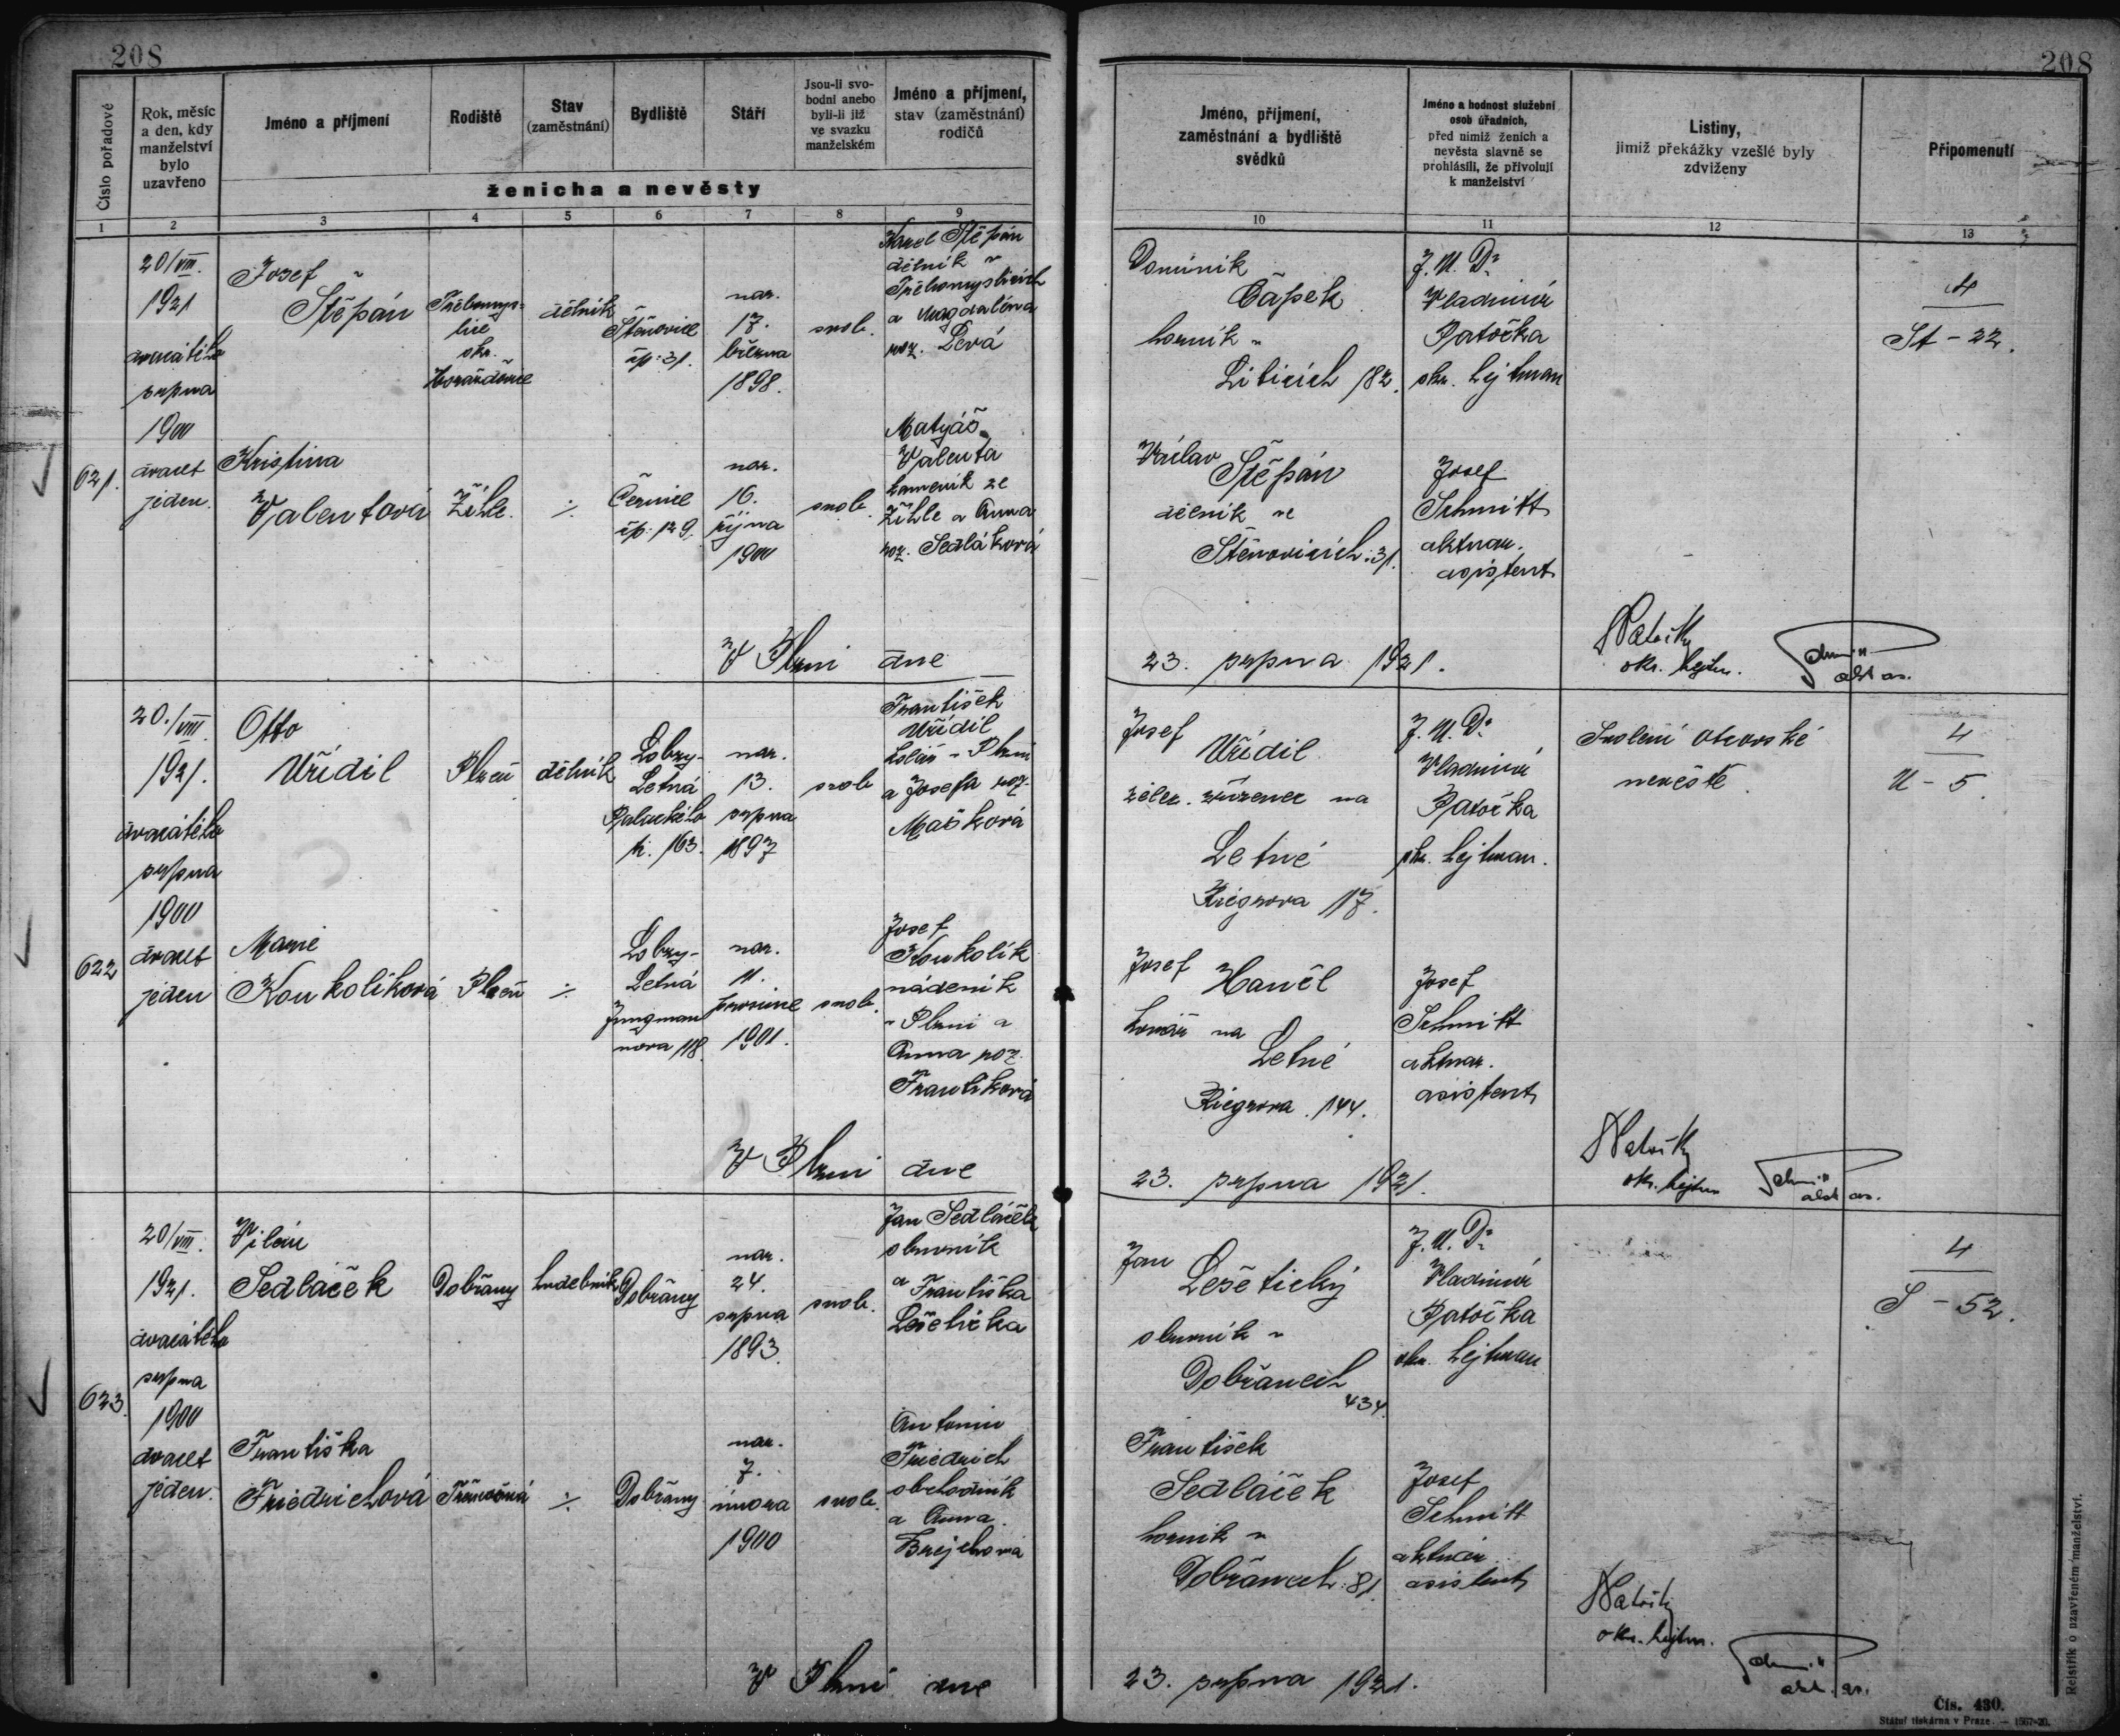 208
208
Číslo pořadové
Rok, měsíc
a den, kdy
manželství
bylo
uzavřeno
Jméno a příjmení
Rodiště
Stav
(zaměstnání)
Bydliště
Stáří
Jsou-li svo-
bodni anebo
byli-li již
ve svazku
manželském
Jméno a příjmení,
stav (zaměstnání)
rodičů
ženicha a nevěsty
Jméno, příjmení,
zaměstnání a bydliště
svědků
Jméno a hodnost služební
osob úřadních,
před nimiž ženich a
nevěsta slavně se
prohlásili, že přivolují
k manželství
Listiny,
jimiž překážky vzešlé byly
zdviženy
Připomenutí
1 2 3 4 5 6 7 8 9 10 11 12 13
621.
20/VIII.
1921
dvacátého
srpna
1900
dvacet
jeden.
Josef
Štěpán
Třebomys-
lice
okr.
Horažďovice
dělník
Štěnovice
čp. 31.
nar.
17.
března
1898.
svob.
Karel Štěpán
dělník v
Třebomyslicích
a Magdaléna
roz. Levá
Kristina
Valentová
Žihle.
÷
Černice
čp. 129.
nar.
16.
října
1900
svob.
Matyáš
Valenta
kameník ze
Žihle a Anna
roz. Sedláková
Dominik
Čápek
horník v
Liticích 182.
Václav
Štěpán
dělník ve
Štěnovicích 31.
J. U. Dr
Vladimír
Patočka
okr. hejtman
Josef
Schmitt
aktuar.
asistent
4
St - 22.
V Plzni dne
23. srpna 1921.
okr. hejtm.
akt as.
622
20./VIII
1921.
dvacátého
srpna
1900
dvacet
jeden
Otto
Uřídil
Plzeň
dělník
Lobzy-
Letná
Palackého
tř. 163.
nar.
13.
srpna
1897
svob
František
Uřídil
kolář v Plzni
a Josefa roz.
Mašková
Marie
Koukolíková
Plzeň
÷
Lobzy-
Letná
Jungman
nova 118.
nar.
11.
prosince
1901.
svob.
Josef
Koukolík
nádeník
v Plzni a
Anna roz.
Františková
Josef
Uřídil
želez. zřízenec na
Letné
Riegrova 117.
Josef
Hančl
kovář na
Letné
Riegrova. 144.
J. U. Dr
Vladimír
Patočka
okr. hejtman.
Josef
Schmitt
aktuar.
asistent
Svolení otcovské
nevěstě.
4
U - 5
V Plzni dne
23. srpna 1921.
okr. hejtm
akt as.
623.
20/VIII.
1921.
dvacátého
srpna
1900
dvacet
jeden.
Vilém
Sedláček
Dobřany
hudebník
Dobřany
nar.
24.
srpna
1893.
svob.
Jan Sedláček
obuvník
a Františka
Lešetická
Františka
Friedrichová
÷
Dobřany
nar.
7.
února
1900
svob.
Antonín
Friedrich
obchodník
a Anna
Brejchová
Jan
Lešetický
obuvník v
Dobřanech
434.
František
Sedláček
horník v
Dobřanech 81.
J. U. Dr
Vladimír
Patočka
okr. hejtman
Josef
Schmitt
aktuár.
asistent
4
S - 52.
V Plzni dne
23. srpna 1921.
okr. hejtm.
akt. as.
Rejstřík o uzavřeném manželství.
Čís. 430.
Státní tiskárna v Praze. — 1567-20.